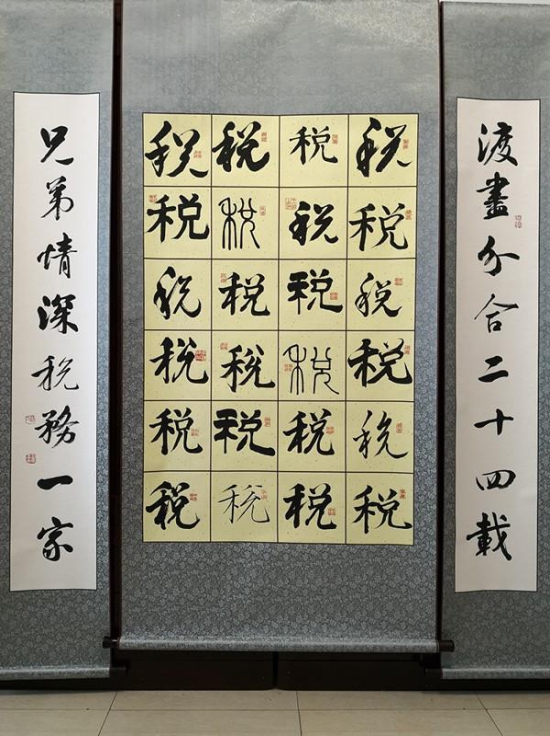 渡盡分合二十四載
税税税税
税税税税
税税税税
税税税税
税税税税
税税税税
兄弟情深税務一家